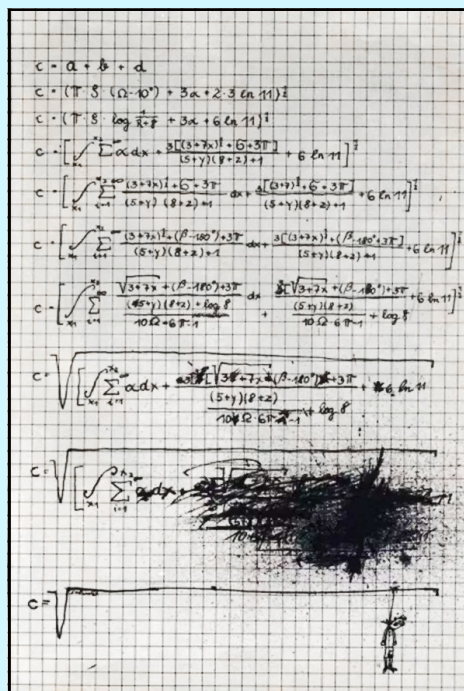 c = a + b + d
c = (π · ϱ · (Ω-10°) + 3α + 2·3 ln 11)^½
c = (π · ϱ · log + 3α + 6 ln 11)^½
c = [∫x₁^x₂ Σ^∞ α dx + 3[(3+7x)^½+6+3π] / (5+y)(8+z)+1 + 6 ln 11]^½
c = [∫x₁^x₂ Σi=1^∞ (3+7x)^½+6+3π / (5+y)(8+z)+1 dx + 3[(3+7)^½+6+3π] / (5+y)(8+z)+1 + 6 ln 11]^½
c = [∫x₁^x₂ Σi=1^∞ (3+7x)^½+(β-180°)+3π / (5+y)(8+z)+1 dx + 3[(3+7x)^½+(β-180°)+3π] / (5+y)(8+z)+1 + 6 ln 11]^½
c = [∫x₁^x₂ Σi=1^∞ √3+7x+(β-180°)+3π / (5+y)(8+z)+log 8 / 10Ω·6π-1 dx + [√3+7x+(β-180°)+3π / (5+y)(8+z) / 10Ω·6π-1 + log 8 + 6 ln 11]^½
c = √[∫x₁^x₂ Σi=1^∞ α dx + [√3+7x (β-180°)+3π / (5+y)(8+z) / 10Ω·6π-1 + log 8 + 6 ln 11
c = √[∫x₁^x₂ Σi=1^∞ dx +
c = √